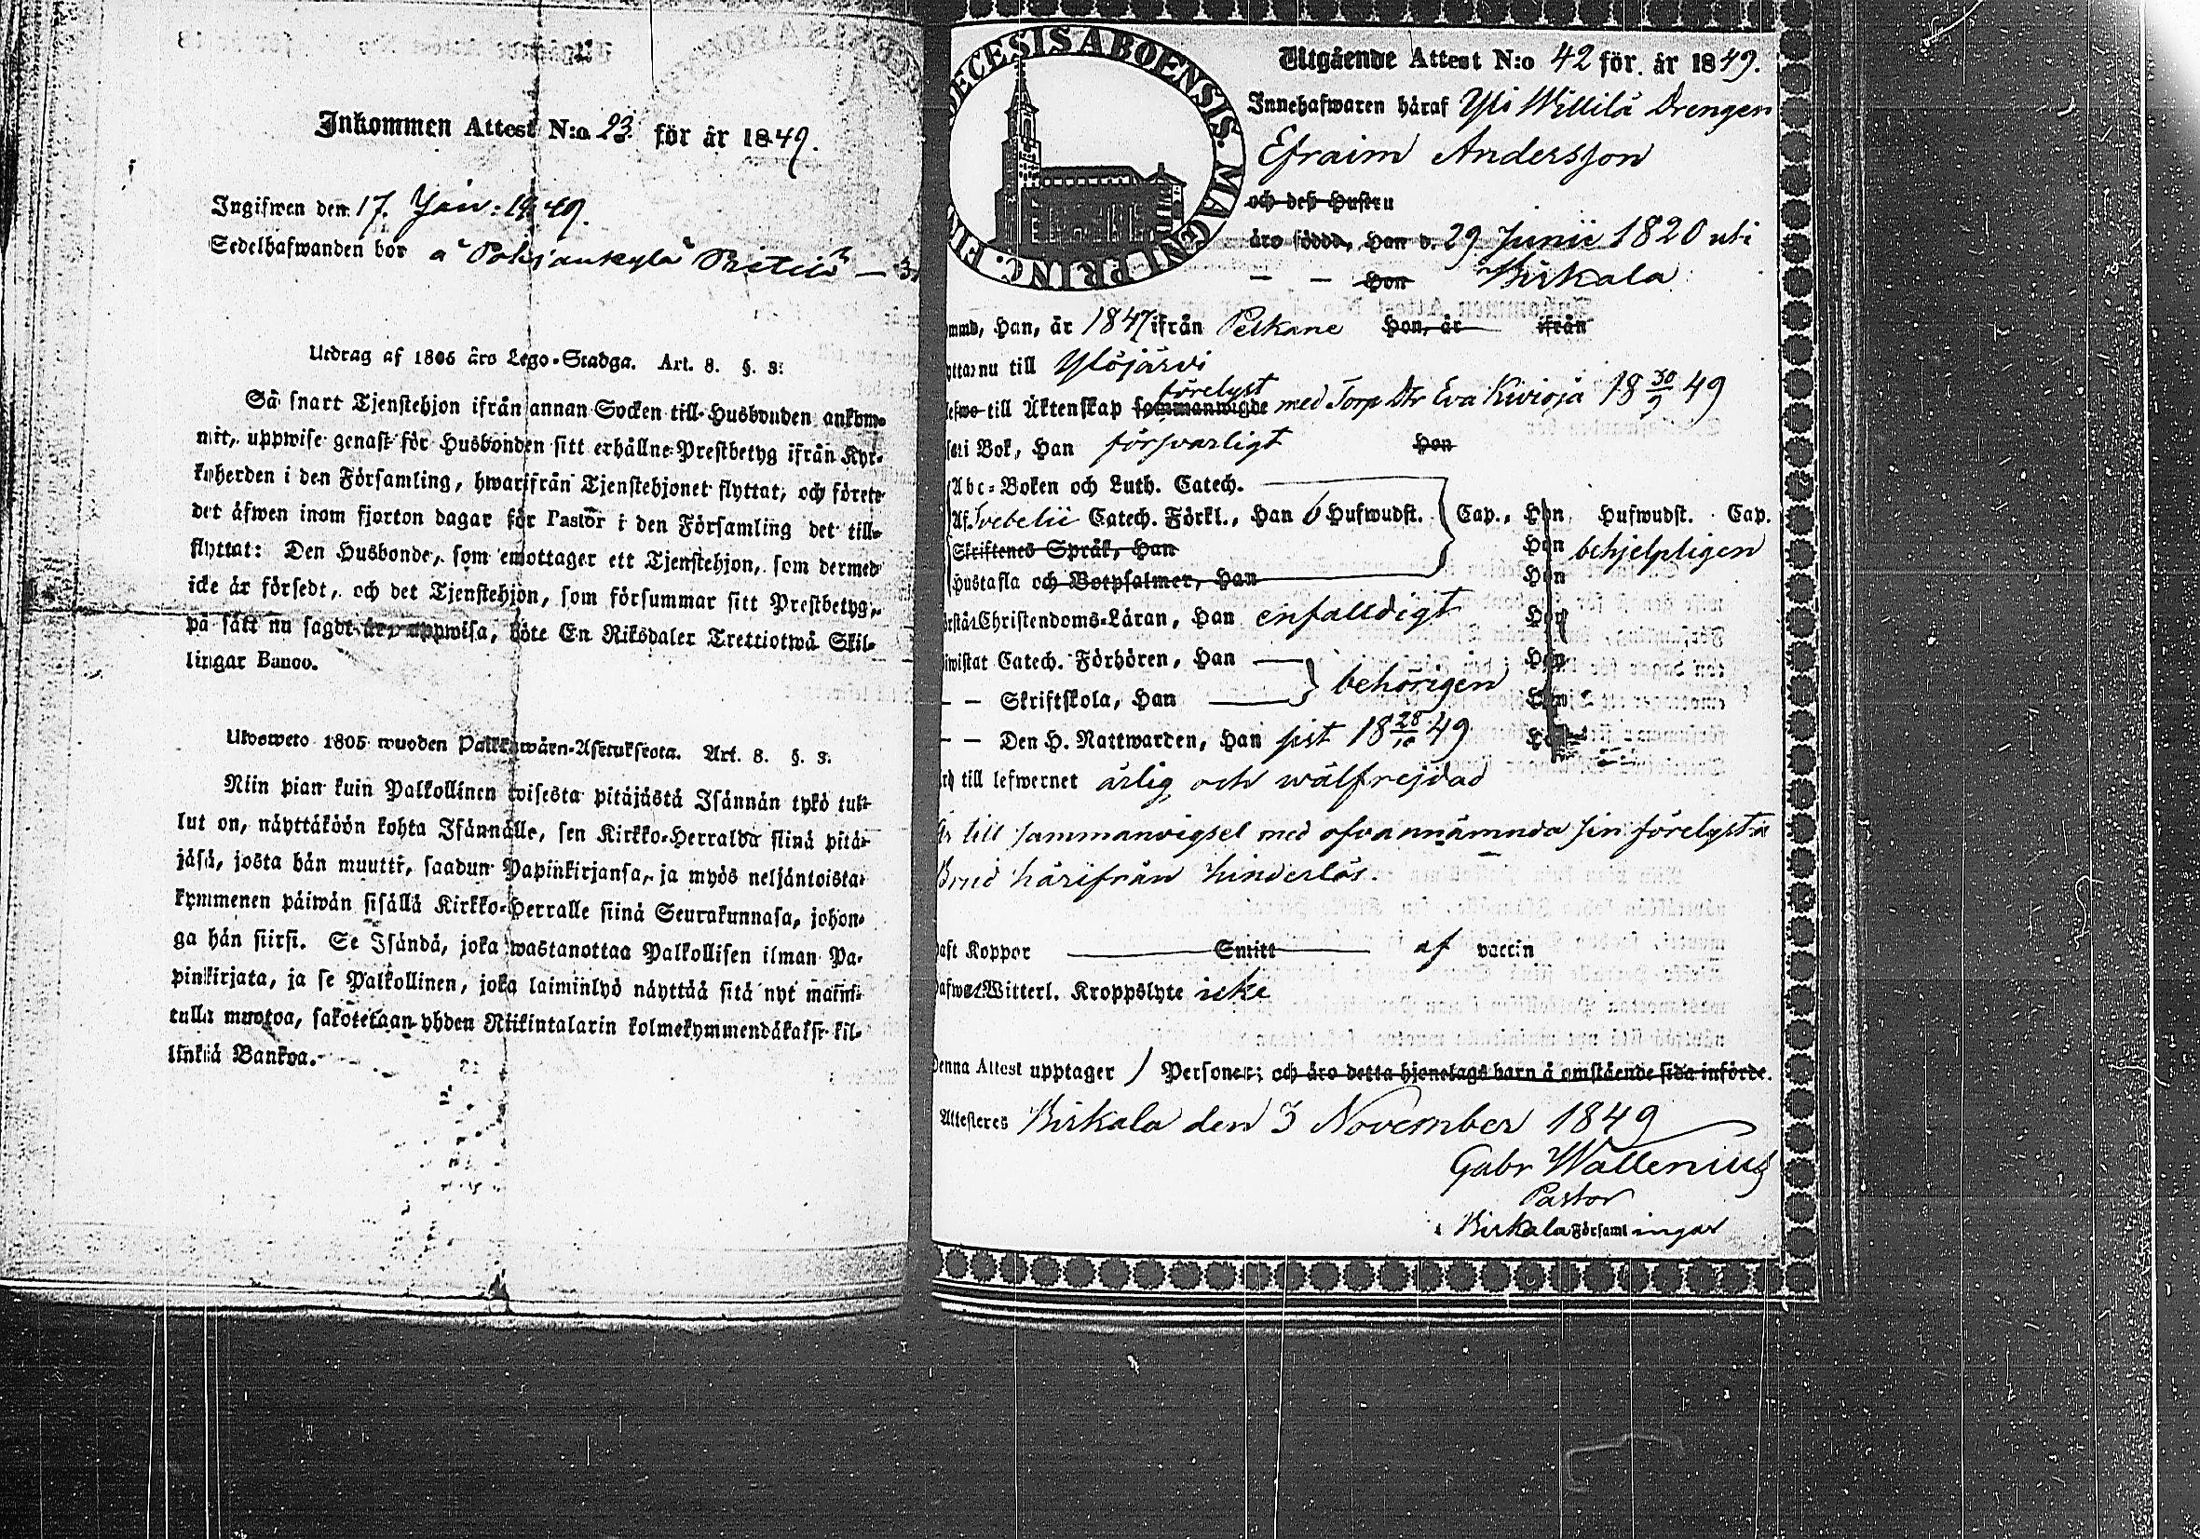 Inkommen Attest N:o 23 för år 1849.
Ingifwen den 17 Jan: 1849.
Sedelhafwanden bor å Pohjankylä
Utdrag af 1805 års Lego-Stadga. Art. 8. §. 3:
Så snart Tjenstehjon ifrån annan Socken till Husbonden ankom-
mit, uppwise genast för Husbonden sitt erhållne Prestbetyg ifrån Kyr-
koherden i den Församling, hwarifrån Tjenstehjonet flyttat, och förete
det åfwen inom fjorton dagar för Pastor i den Församling det till-
flyttat: Den Husbonde, som emottager ett Tjenstehjon, som dermed
icke är försedt, och det Tjenstehjon, som försummar sitt Prestbetyg,
på sått nu sagdt är, uppwisa, bòte En Riksdaler Trettiotwå Skil-
lingar Banco.
Ulosweto 1805 wuoden Palkkawäen-Asetuksesta. Art. 8. §. 3.
Niin pian kuin Palkollinen toisesta pitäjästä Isännän tykö tul-
lut on, näyttäköön kohta Isännälle, sen Kirkko-Herralda siinä pitä-
jäsä, josta hän muutti, saadun Papinkirjansa, ja myös neljäntoista-
kymmenen päiwän sisällä Kirkko-Herralle siinä Seurakunnasa, johon-
ga hän siirsi. Se Isändä, joka wastanottaa Palkollisen ilman Pa-
pinkirjata, ja se Palkollinen, joka laiminlyö näyttää sitä nyt maini-
tulla muotoa, sakotetaan yhden Riikintalarin kolmekymmendäkaksi kil-
linkiä Bankoa.
DIECESIS ABOENSIS. MAGNI PRINC. FI
Utgående Attest N:o 42 för år 1849.
Innehafwaren håraf Yli Willilä Drengen
Efraim Andersson
och deß Hustru
äro födde, Han d. 29 Junii 1820 uti
— — Hon Birkala
ommo, Han, år 1847 ifrån Pelkane Hon, år ifrån
yttar nu till Ylöjärvi
förelyst
lefwo till Äktenskap sammanwigde med Torp Dtr Eva Kivioja 18 30/9 49
ser i Bok, Han försvarligt Hon
Abc-Boken och Luth. Catech.
Af Svebelii Catech. Förkl., Han 6 Hufwudst. Cap., Hon Hufwudst. Cap.
Skriftenes Språk, Han Hon behjelpligen
Hustafla och Botpsalmer, Han Hon
rstår Christendoms-Läran, Han enfalldigt Hon
iwistat Catech. Förhören, Han Hon
— — Skriftskola, Han behörigen Hon
— — Den H. Nattwarden, Han sist 18 28/10 49 Hon
rd till lefwernet ärlig och wälfrejdad
Är till sammanvigsel med ofvannämnda sin förelysta
Brud härifrån hinderlös.
Haft Koppor Smitt af vaccin
Hafwer Witterl. Kroppslyte icke
Denna Attest upptager 1 Personer; och äro detta hjonelags barn å omstående sida införde.
Attesteres Birkala den 3 November 1849
Gabr Wallenius
Pastor
i Birkala Församlingar